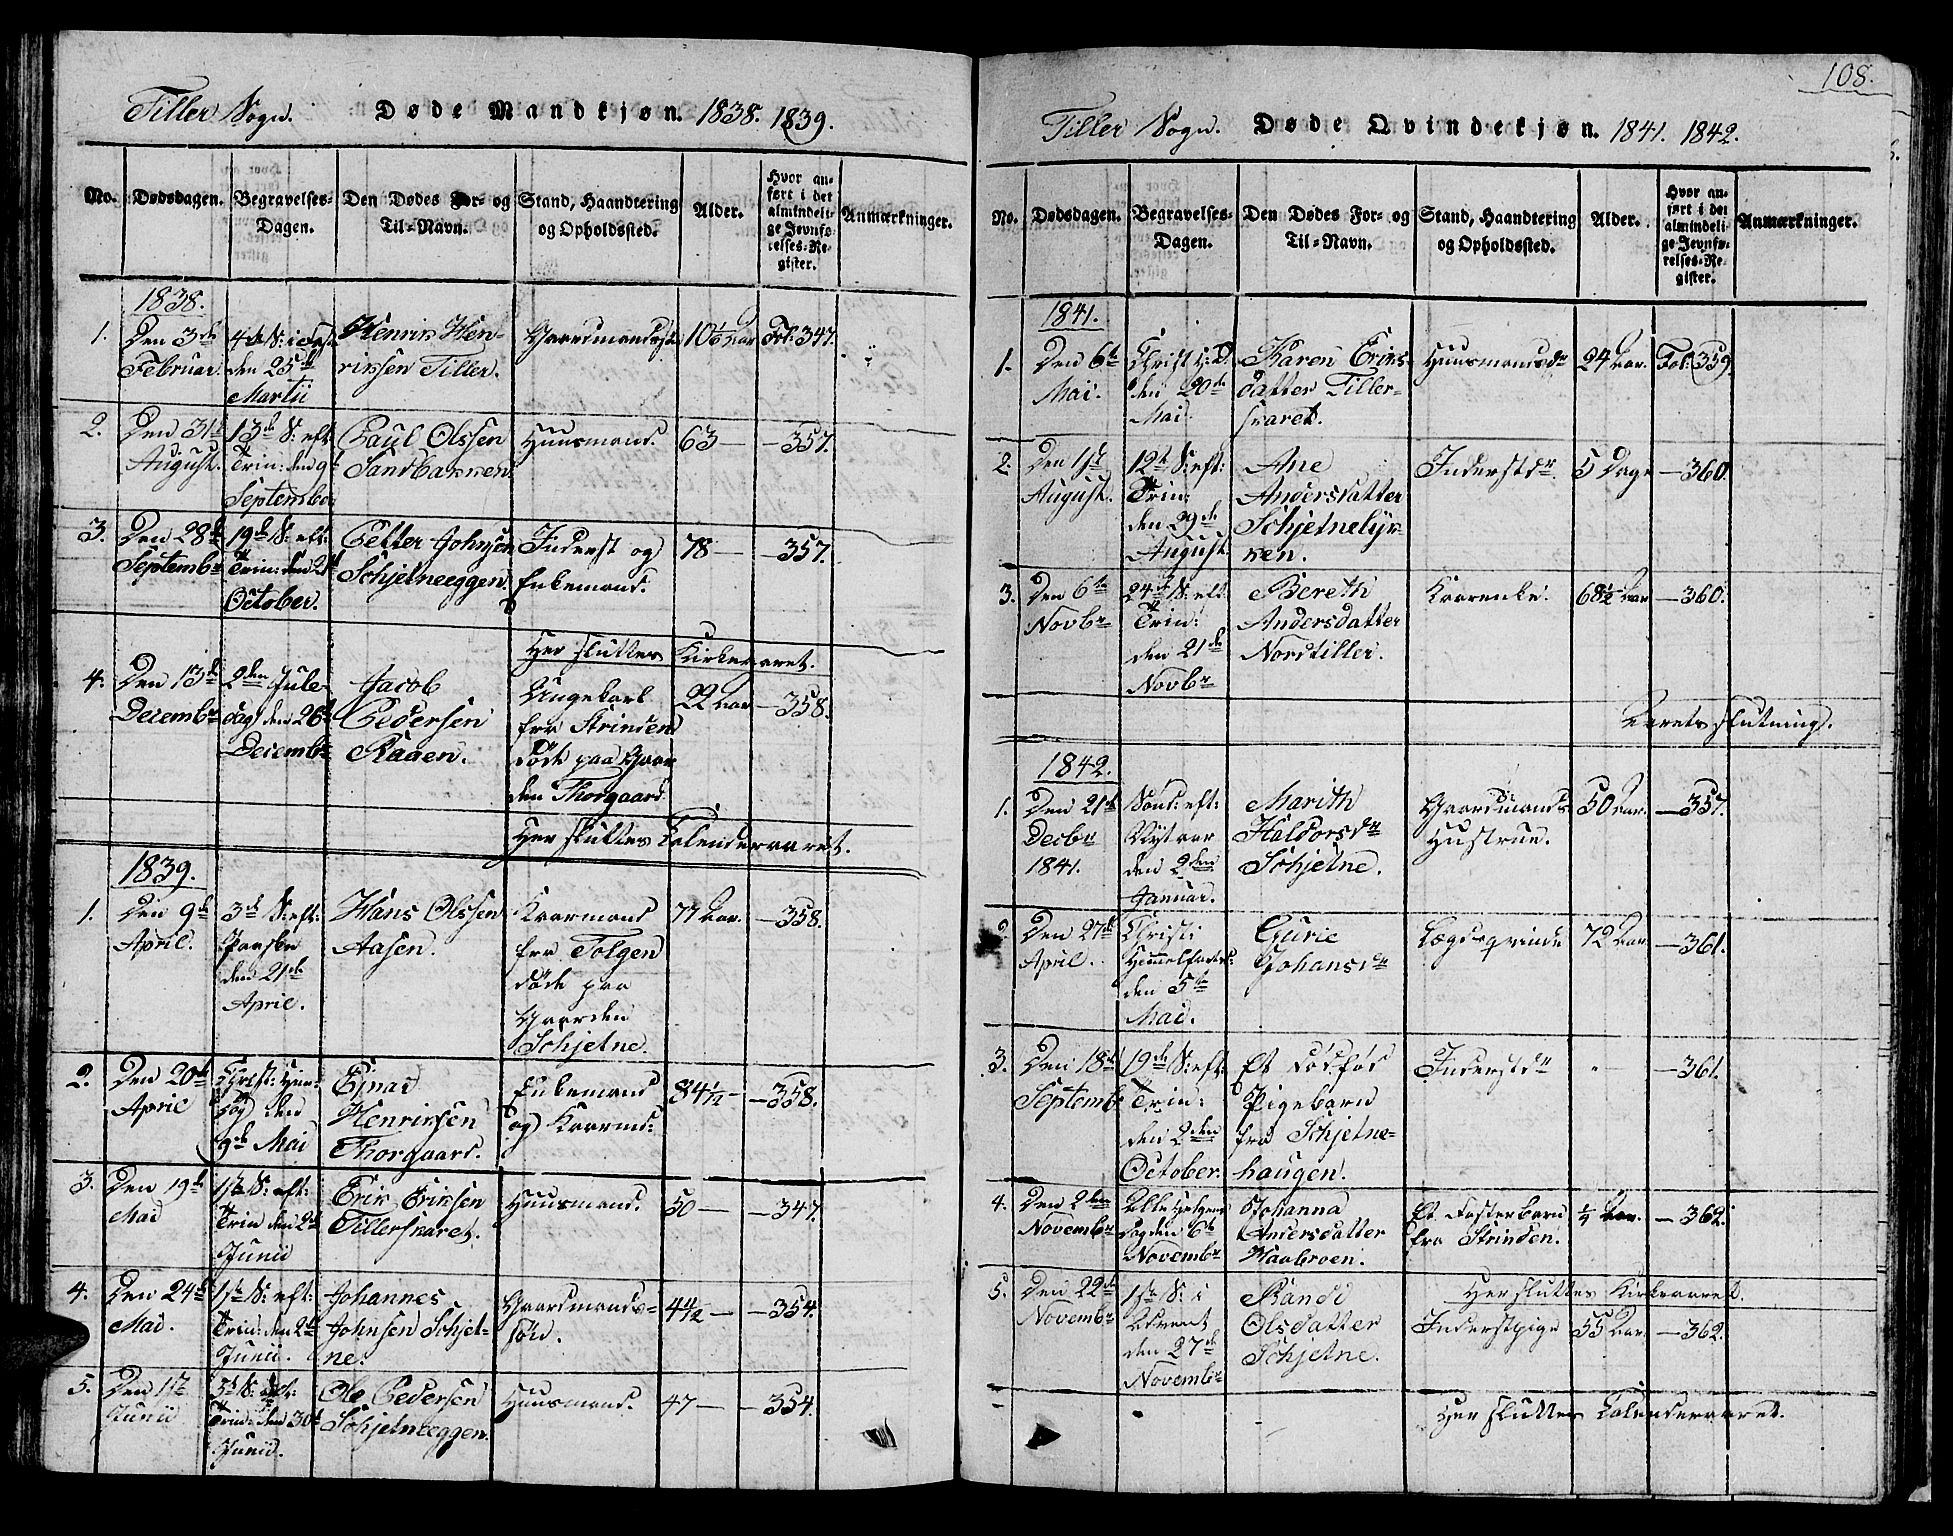 Tiller Sogn. Døde Mandkjøn. 1838. 1839.
No. Dødsdagen. Begravelses-Dagen. Den Dødes For- og Til-Navn. Stand, Haandtering og Opholdssted. Alder. Hvor anført i det almindelige Jevnførelses-Register. Anmærkninger.
1838.
1. Den 3de Februar. 4de S: i Fast den 25de Martii Henrik Henriksen Tiller. Gaardmands 10½ Aar Fol: 347.
2. Den 31te August. 13de S: eft: Trin: den 9de September Paul Olssen Sandbakken. Huusmand. 63 — — 357.
3. Den 28de Septembr 19de S: eft: Trin: den 21de October. Petter Johnsen Schjetneeggen. Inderst og Enkemand. 78 — — 357.
Her sluttes Kirkeaaret.
4. Den 13de Decembr 2den Juledag den 26de Decembr Jacob Pedersen Raaen. Ungekarl fra Strinden døde paa Gaarden Thorgaard. 22 Aar — 358.
Her sluttes Calenderaaret.
1839.
1. Den 9de April. 3de S: eft: Paaske den 21de April. Hans Olssen Aasen. Kaarmand fra Tolgen døde paa Gaarden Schjetne. 77 Aar. — 358.
2. Den 20de April Christi Himf: dag den 9de Mai Henriksen Thorgaard. Enkemand og Kaarmd: 84½ — — 358.
3. Den 19de Mai 1ste S: eft: Trin den 2den Junii Erik Eriksen Tillerskaret. Huusmand. 50 — — 347.
4. Den 24de Mai. 1ste S: eft: Trin: den 2den Junii. Johannes Johnsen Schjetne. Gaardmands-søn. 4½ — — 354.
5. Den 1ste Junii 5te S: eft: Trin: den 30te Junii. Ole Pedersen Schjetneeggen. Huusmand. 47 — — 354.
108.
Tiller Sogn. Døde Qvindekjøn. 1841. 1842.
No. Dødsdagen. Begravelses-Dagen. Den Dødes For- og Til-Navn. Stand, Haandtering og Opholdssted. Alder. Hvor anført i det almindelige Jevnførelses-Register. Anmærkninger.
1841.
1. Den 6te Mai. Christi H: D. den 20de Mai. Karen Eriksdatter Tillerskaret. Huusmandsdr 24 Aar. Fol: 359.
2. Den 1ste August. 12te S: eft: Trin: den 29de August. Ane Andersdatter Schjetnelykken. Inderstdr. 5 Dage — 360.
3. Den 6te Novbr 24de S: eft Trin: den 21de Novbr Bereth Andersdatter Nordtiller. Kaarenke. 68½ Aar — 360.
Aarets slutning.
1842.
1. Den 21de Decbr 1841. Sønd: eft: Nytaar den 2den Januar. Marith Haldorsdr Schjetne. Gaardmands Hustrue. 50 Aar. — 357.
2. Den 27de April. Christi Himmelfartsd: den 5te Mai. Gurie Johansdr Lægdsqvinde 72 Aar — 361.
3. Den 18de Septembr 19de S: eft: Trin: den 2den October. Et dødfød Pigebarn fra Schjetnehaugen. Inderstdr — — 361.
4. Den 2den Novembr Alle Helgens dag den 6te Novembr Johanna Andersdatter Et Fosterbarn fra Strinden. ¼ Aar. — 362.
Her sluttes Kirkeaaret.
5. Den 22de Novembr 1ste S: i Advent den 27de Novembr Randi Olsdatter Schjetne. Inderstpige 55 Aar. — 362.
Her sluttes Calenderaaret.